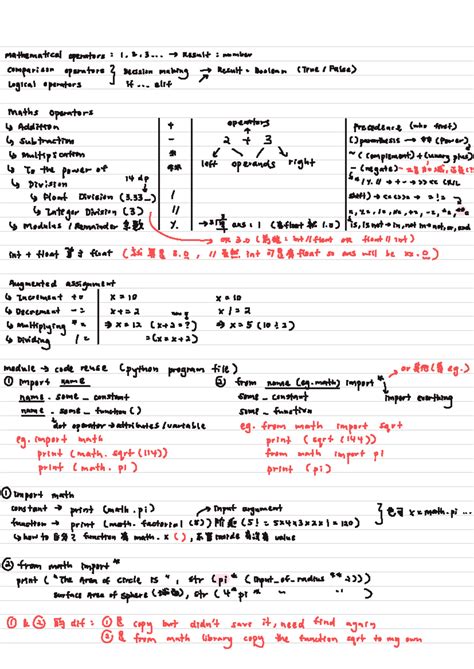 mathematical operators : 1, 2, 3 ... → Result : number
comparison operators } Decision making → Result = Boolean (True / False)
Logical operators } if ... elif
Maths operators
↳ Addition +
↳ Subtraction -
↳ Multiplication *
↳ To the power of **
↳ Division 14 dp
↳ Float Division (3.33...) /
↳ Integer Division (3) //
↳ Modulus / Remainder 余数 %
operators
2 + 3
left operands right
Precedence (who first)
() parenthesis → ** (power)
~ (complement) + (unary plus)
- (negate)
* / % // → + - → >> << (R/L
shift) → < <= > >= → == !=
is, is not → in, not in → not, or, and
int + float 等于 float
Augmented assignment
↳ Increment += x = 10 x = 10
↳ Decrement -= x += 2 x /= 2
↳ Multiplying *= ⇒ x = 12 (x + 2 = ?) ⇒ x = 5 (10 ÷ 2)
↳ Dividing /= = (x = x + 2)
module → code reuse (python program file)
① import name
name . some _ constant
name . some _ function ()
↳ dot operator → attributes / variable
eg. import math
print (math. sqrt (114))
print (math. pi)
② from name (eg. math) import *
import everthing
some _ constant
some _ function
eg. from math import sqrt
print (sqrt (144))
from math import pi
print (pi)
① Import math
constant → print (math. pi) input argument
function → print (math. factorial (5)) 阶乘 (5! = 5x4x3x2x1 = 120) } 也可 x = math. pi ...
② from math import *
print ("The Area of circle is ", str (pi * (input_of_radius ** 2)))
surface Area of sphere
① & ② 的 dif : ① 是 copy but didn't save it, need find again
② 是 from math library copy the function sqrt to my own